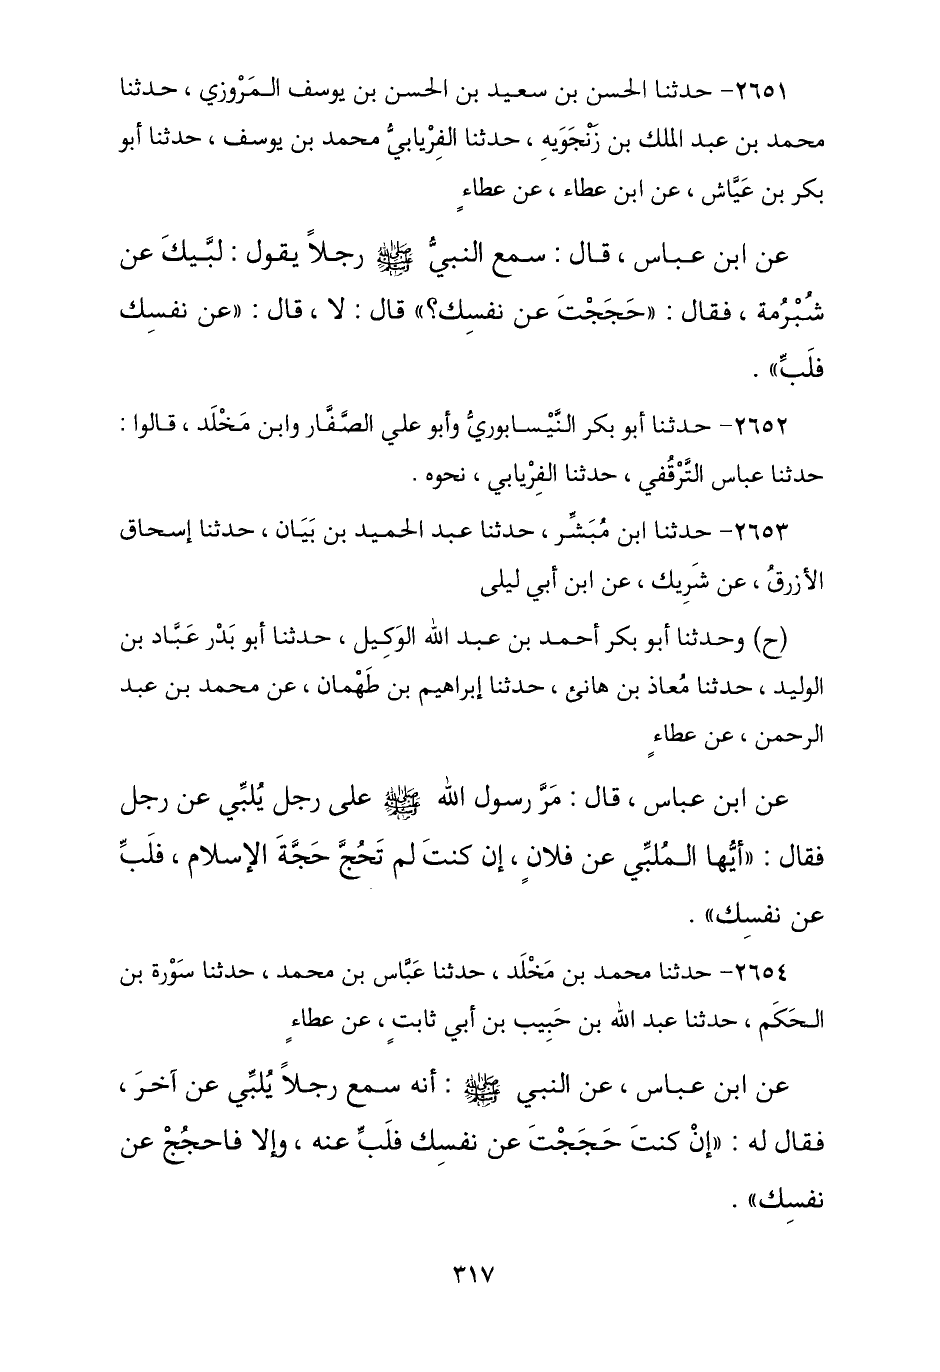 ٢٦٥١- حدثنا الحسن بن سعيد بن الحسن بن يوسف المَرْوزي ، حدثنا
محمد بن عبد الملك بن زَنْجَوَيهِ ، حدثنا الفِرْيابيُّ محمد بن يوسف ، حدثنا أبو
بكر بن عَيَّاش ، عن ابن عطاء ، عن عطاءٍ
عن ابن عباس ، قال : سمع النبيُّ ﷺ رجلاً يقول : لبَّيكَ عن
شُبْرُمة ، فقال : «حَجَجْتَ عن نفسِك؟» قال : لا ، قال : «عن نفسِك
فلَبِّ» .
٢٦٥٢- حدثنا أبو بكر النَّيْسابوريُّ وأبو علي الصَّفَّار وابن مَخْلَد ، قالوا :
حدثنا عباس التَّرْقُفي ، حدثنا الفِرْيابي ، نحوه .
٢٦٥٣- حدثنا ابن مُبَشِّر ، حدثنا عبد الحميد بن بَيَان ، حدثنا إسحاق
الأزرقُ ، عن شَرِيك ، عن ابن أبي ليلى
(ح) وحدثنا أبو بكر أحمد بن عبد الله الوَكِيل ، حدثنا أبو بَدْر عَبَّاد بن
الوليد ، حدثنا مُعاذ بن هانئ ، حدثنا إبراهيم بن طَهْمان ، عن محمد بن عبد
الرحمن ، عن عطاءٍ
عن ابن عباس ، قال : مَرَّ رسول الله ﷺ على رجل يُلبِّي عن رجل
فقال : «أيُّها المُلبِّي عن فلانٍ ، إن كنتَ لم تَحُجَّ حَجَّةَ الإسلام ، فلَبِّ
عن نفسِك» .
٢٦٥٤- حدثنا محمد بن مَخْلَد ، حدثنا عَبَّاس بن محمد ، حدثنا سَوْرة بن
الحَكَم ، حدثنا عبد الله بن حَبِيب بن أبي ثابتٍ ، عن عطاءٍ
عن ابن عباس ، عن النبي ﷺ : أنه سمع رجلاً يُلبِّي عن آخرَ ،
فقال له : «إنْ كنتَ حَجَجْتَ عن نفسِك فلَبِّ عنه ، وإلا فاحجُجْ عن
نفسِك» .
٣١٧